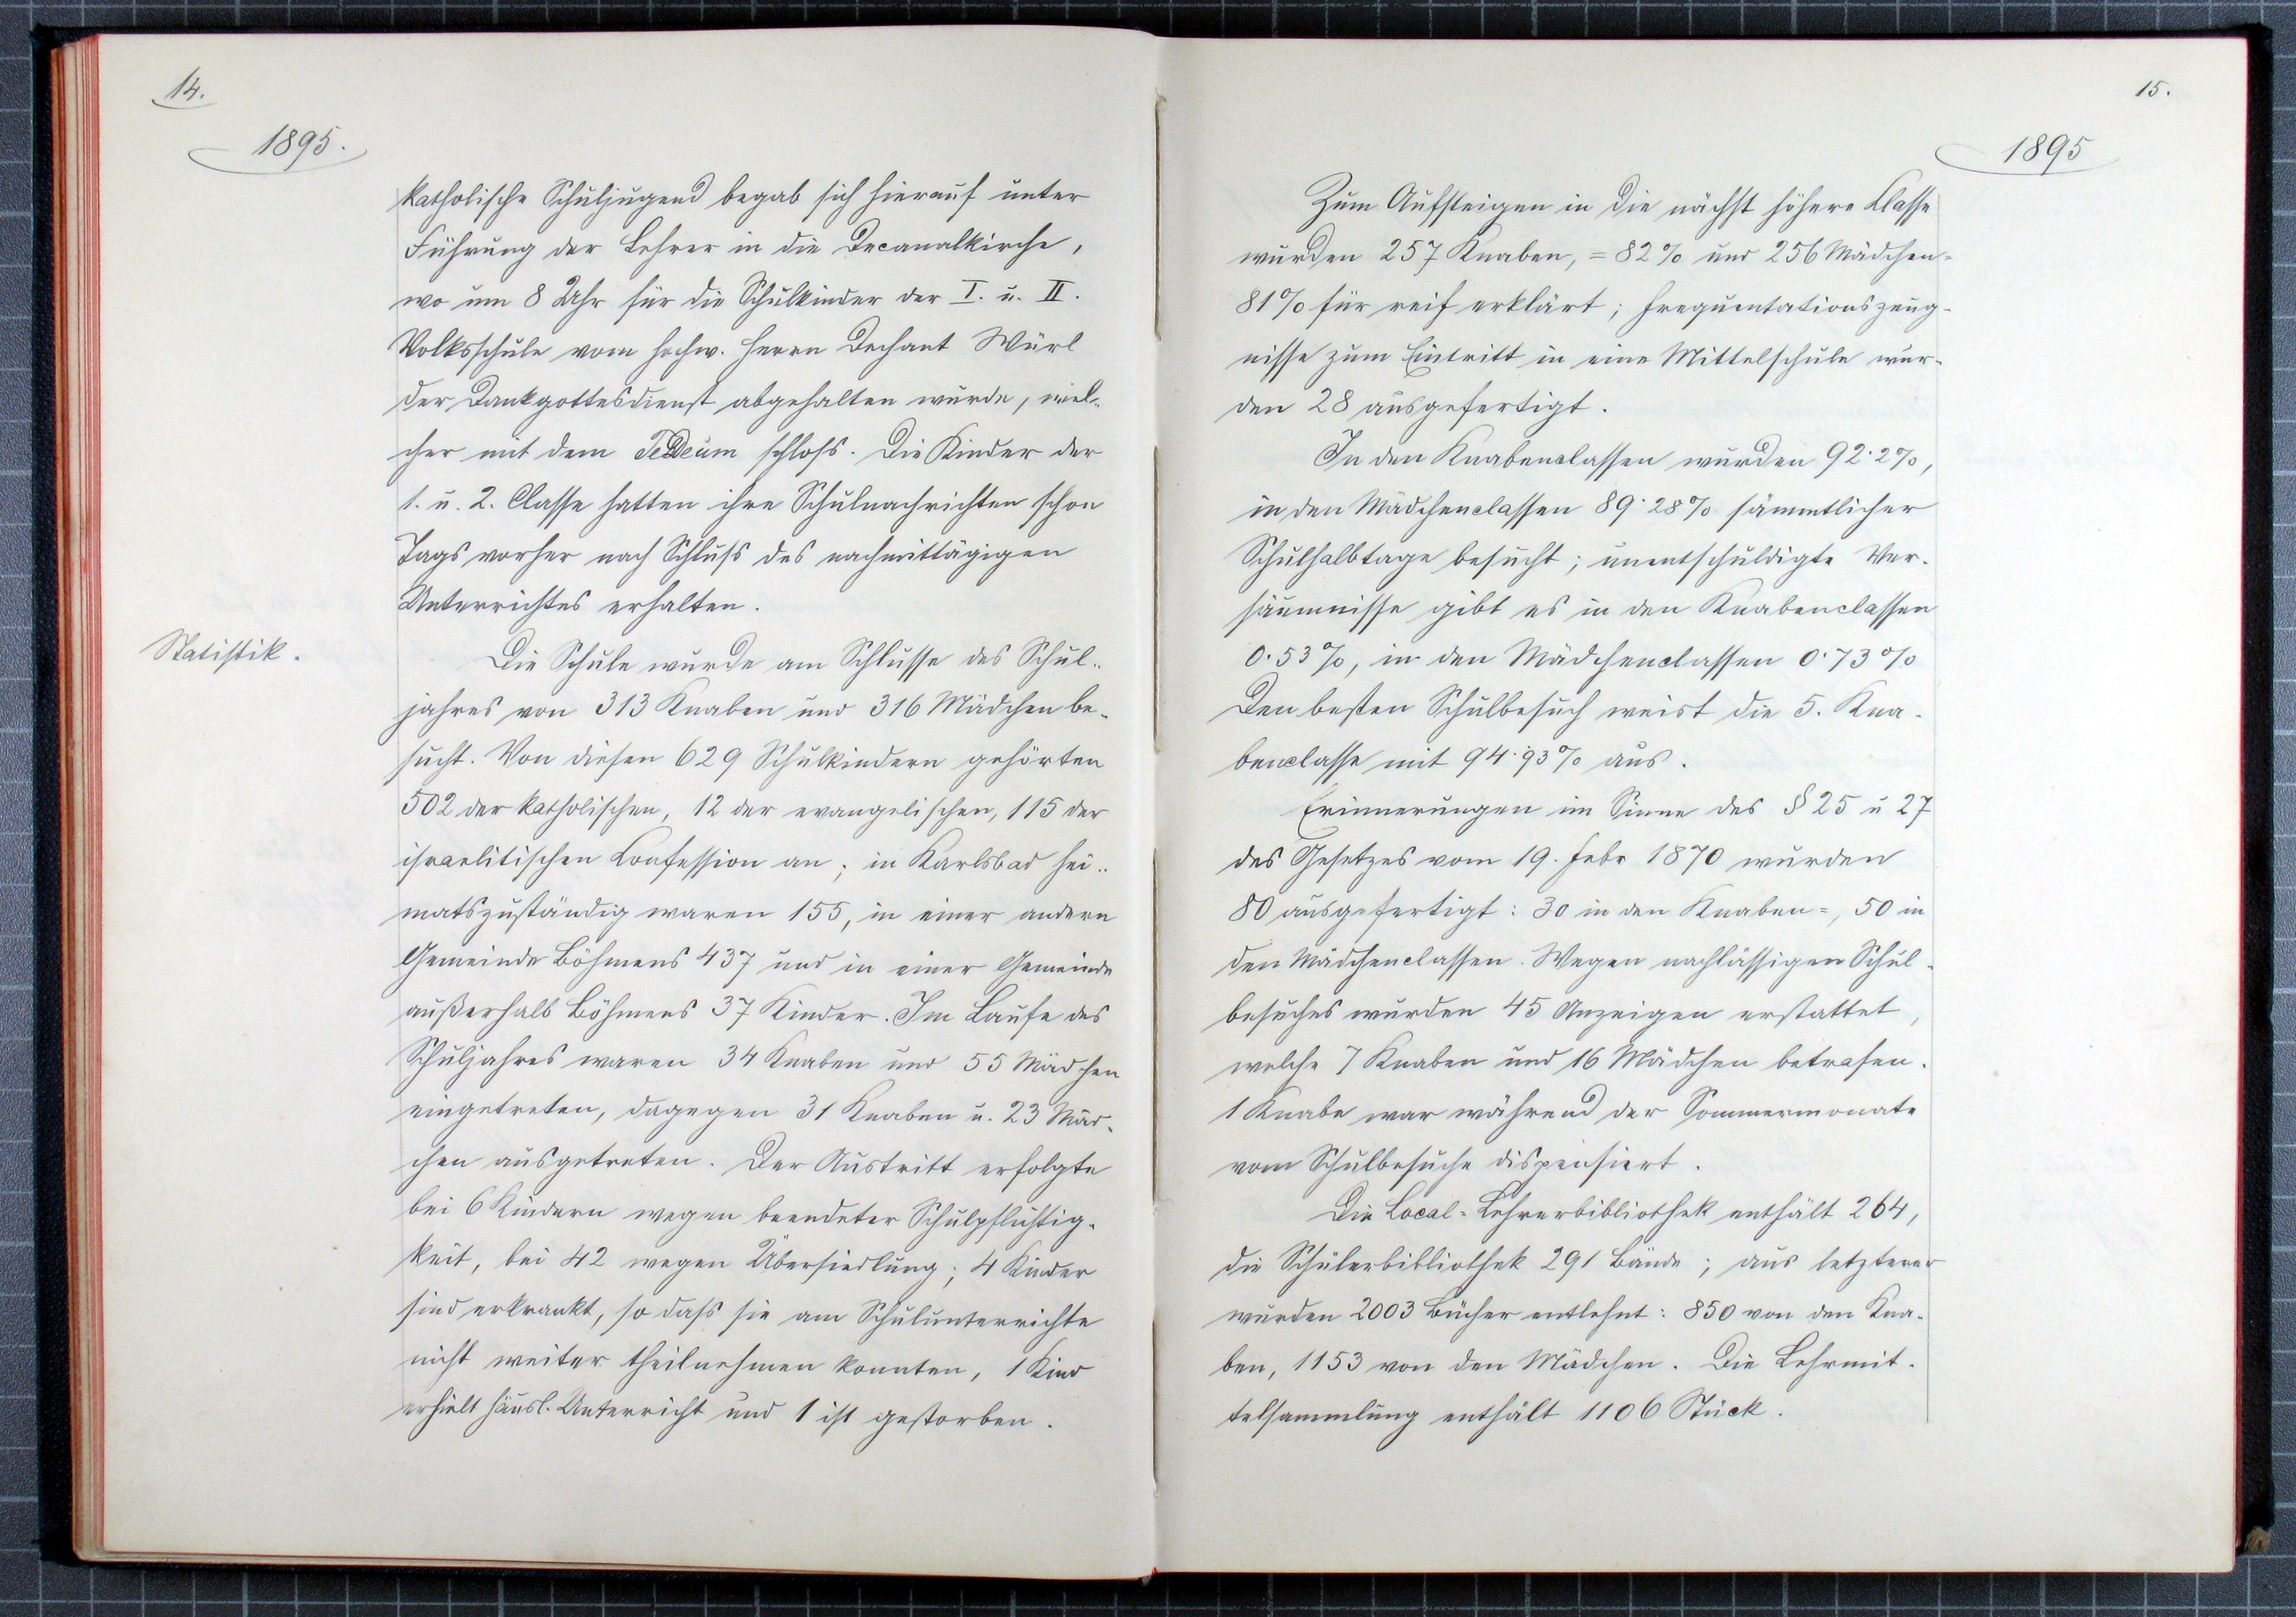 14.
1895.
katholische Schuljugend begab sich hierauf unter
Führung der Lehrer in die Decanalkirche,
wo um 8 Uhr für die Schulkinder der I. u. II.
Volksschule vom hochw. Herrn Dechant Würl
der Dankgottesdienst abgehalten wurde, wel-
cher mit dem TeDeum schloss. Die Kinder der
1. u. 2. Classe hatten ihre Schulnachrichten schon
Tags vorher nach Schluss des nachmittägigen
Unterrichtes erhalten.
Statistik.
Die Schule wurde am Schlusse des Schul-
jahres von 313 Knaben und 316 Mädchen be-
sucht. Von diesen 629 Schulkindern gehörten
502 der katholischen, 12 der evangelischen, 115 der
israelitischen Confession an; in Karlsbad hei-
matszuständig waren 155, in einer andern
Gemeinde Böhmens 437 und in einer Gemeinde
außerhalb Böhmens 37 Kinder. Im Laufe des
Schuljahres waren 34 Knaben und 55 Mädchen
eingetreten, dagegen 31 Knaben u. 23 Mäd-
chen ausgetreten. Der Austritt erfolgte
bei 6 Kindern wegen beendeter Schulpflichtig-
keit, bei 42 wegen Übersiedlung; 4 Kinder
sind erkrankt, so dass sie am Schulunterrichte
nicht weiter theilnehmen konnten, 1 Kind
erhielt häusl. Unterricht und 1 ist gestorben.
15.
1895
Zum Aufsteigen in die nächst höhere Classe
wurden 257 Knaben, = 82% und 256 Mädchen =
81% für reif erklärt; Frequentationszeug-
nisse zum Eintritt in eine Mittelschule wur-
den 28 ausgefertigt.
In den Knabenclassen wurden 92·2%,
in den Mädchenclassen 89·28% sämmtlicher
Schulhalbtage besucht; unentschuldigte Ver-
säumnisse gibt es in den Knabenclassen
0·53%, in den Mädchenclassen 0·73%
Den besten Schulbesuch weist die 5. Kna-
benclasse mit 94·93% aus.
Erinnerungen im Sinne des § 25 u 27
des Gesetzes vom 19. Febr 1870 wurden
80 ausgefertigt: 30 in den Knaben=, 50 in
den Mädchenclassen. Wegen nachlässigen Schul-
besuches wurden 45 Anzeigen erstattet,
welche 7 Knaben und 16 Mädchen betrafen.
1 Knabe war während der Sommermonate
vom Schulbesuche dispensiert.
Die Local-Lehrerbibliothek enthält 264,
die Schülerbibliothek 291 Bände; aus letzterer
wurden 2003 Bücher entlehnt: 850 von den Kna-
ben, 1153 von den Mädchen. Die Lehrmit-
telsammlung enthält 1106 Stück.